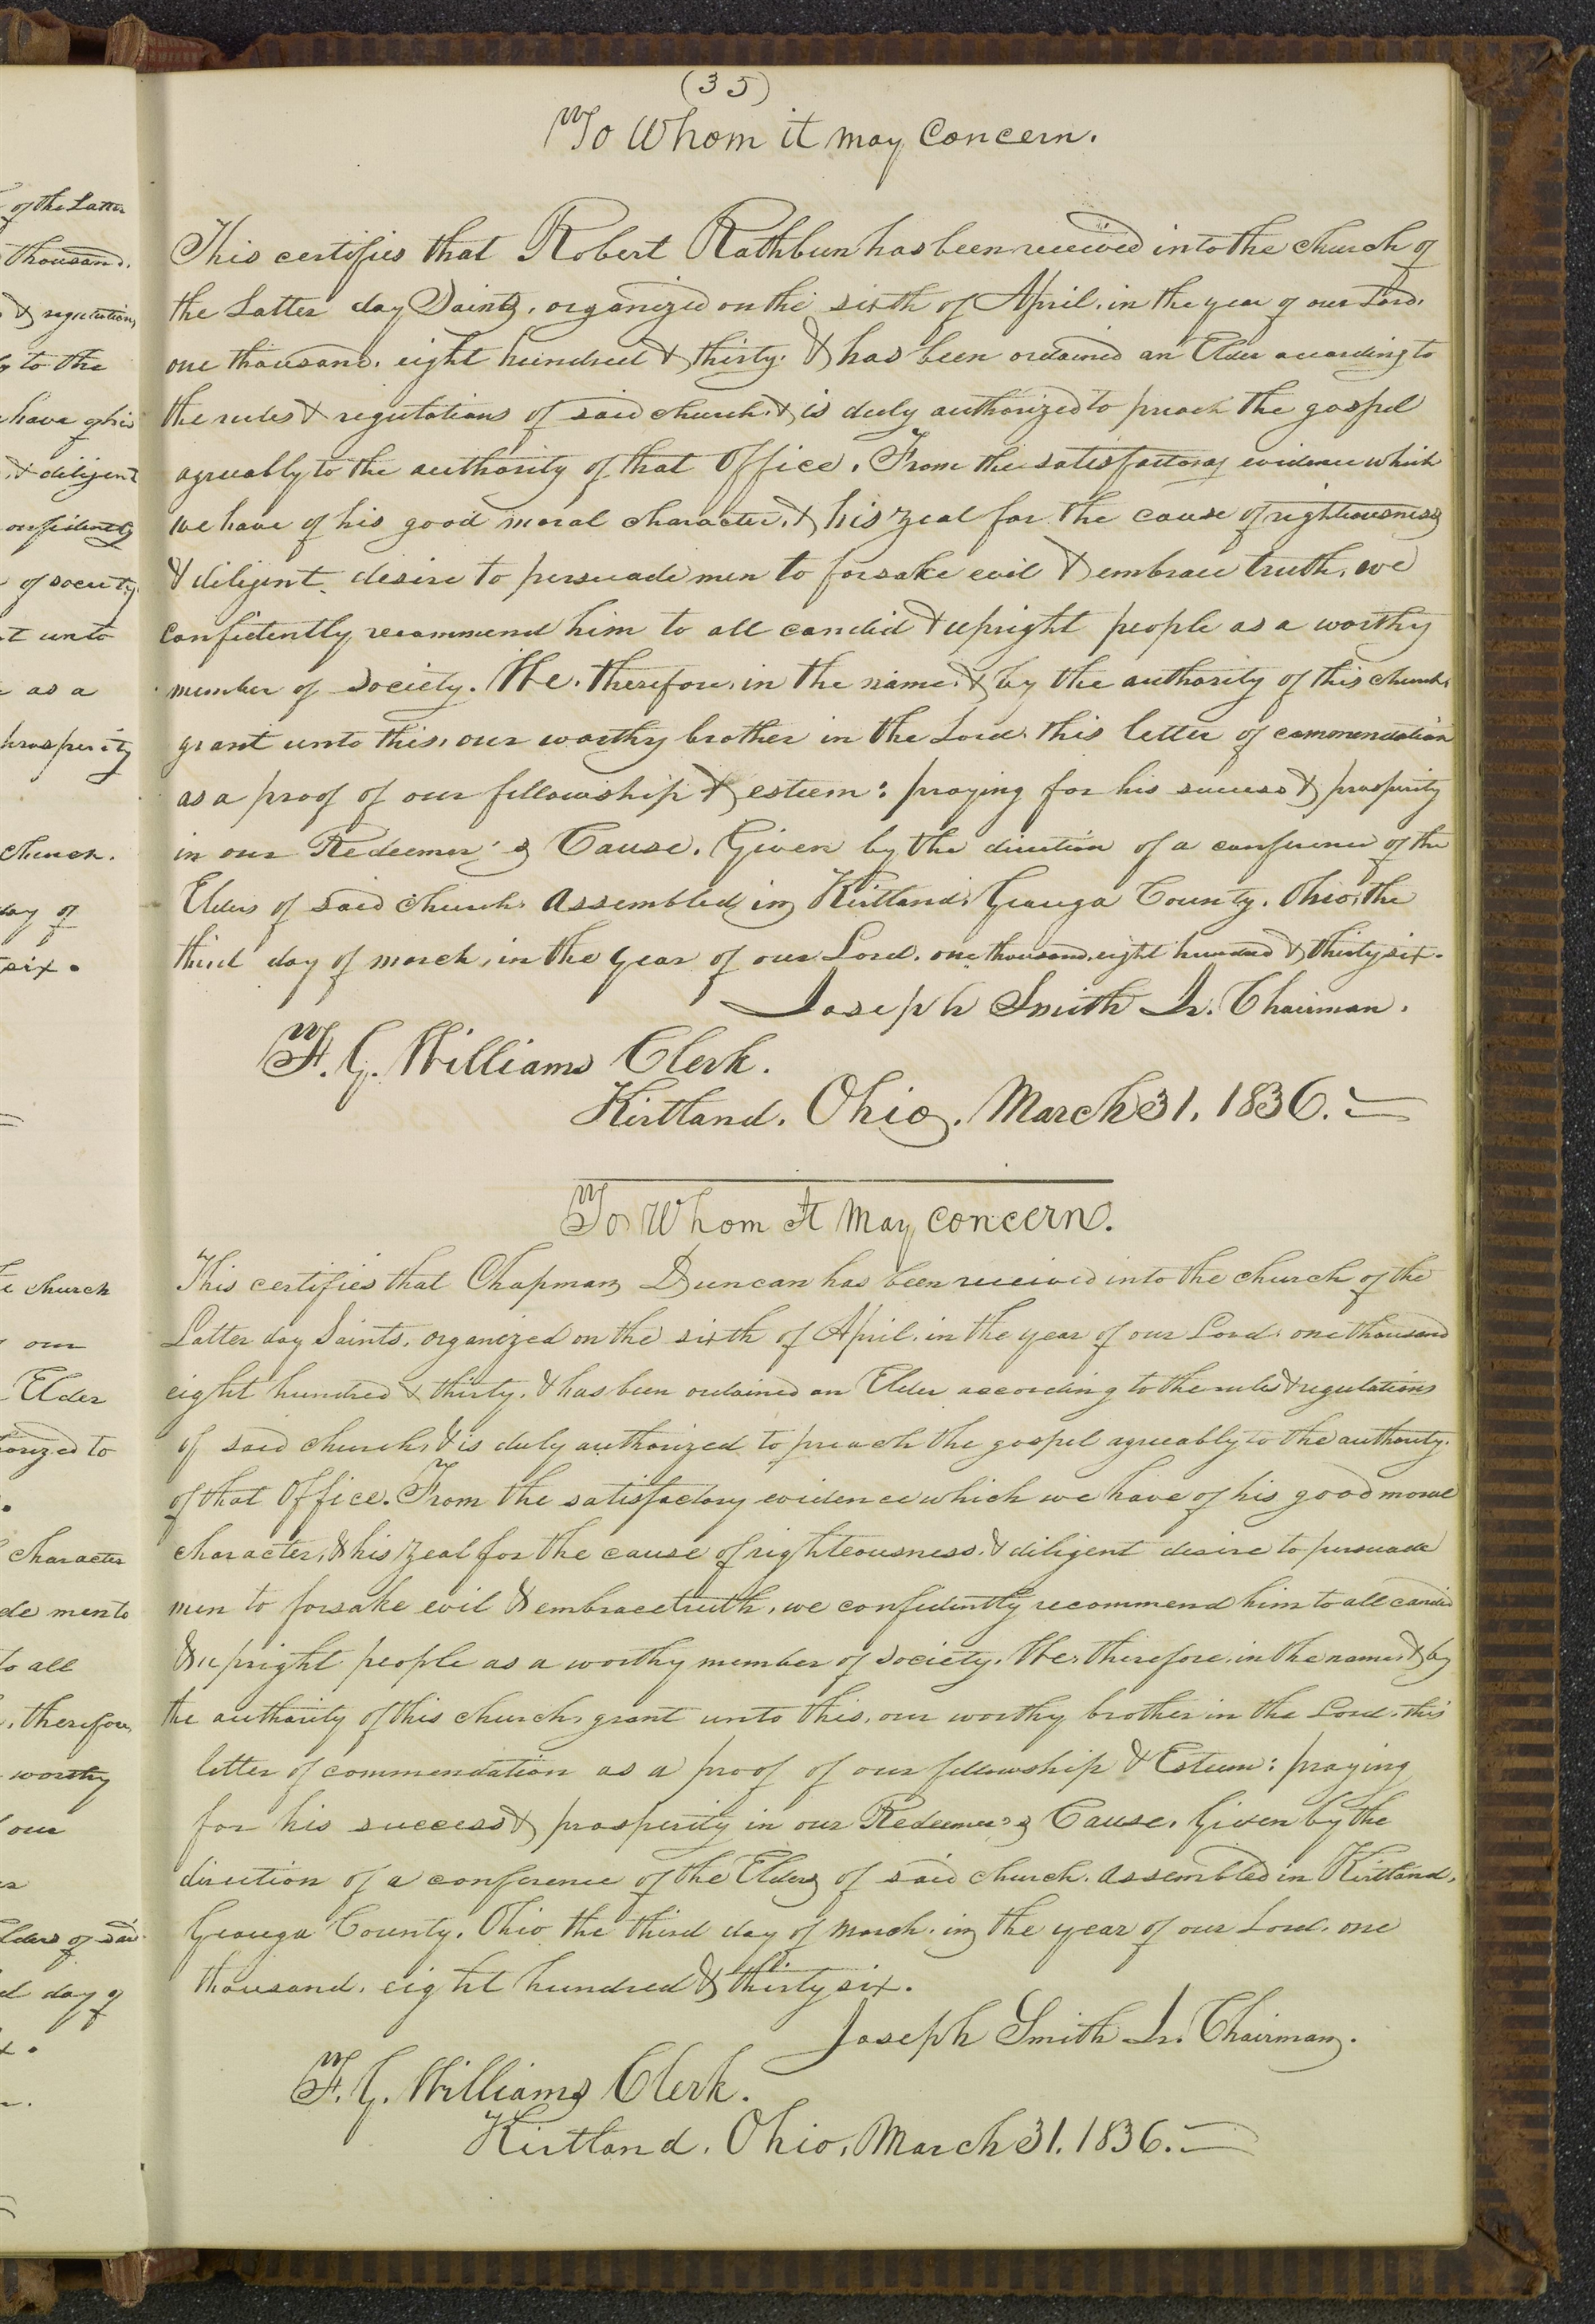 of the Latter
thousand.
& regulations
to the
have of his
& diligent
confidently
of society
unto
as a
prosperity
church.
day of
six.
church
our
Elder
to
character
men to
to all
, therefore,
worthy
our
Elders of said
day of
(35)
To Whom it may Concern.
This certifies that Robert Rathbun has been received into the church of
the Latter day Saints, organized on the sixth of April, in the year of our Lord,
one thousand, eight hundred & thirty. & has been ordained an Elder according to
the rules & regulations of said church, & is duly authorized to preach the gospel
agreeably to the authority of that Office. From the satisfactory evidence which
we have of his good moral character, & his zeal for the cause of righteousness
& diligent desire to persuade men to forsake evil & embrace truth, we
confidently recommend him to all candid & upright people as a worthy
member of society. We, therefore, in the name, & by the authority of this church,
grant unto this, our worthy brother in the Lord, this letter of commendation
as a proof of our fellowship & esteem: praying for his success & prosperity
in our Redeemer's Cause. Given by the direction of a conference of the
Elders of said church, Assembled in Kirtland, Geauga County, Ohio, the
third day of march, in the year of our Lord, one thousand, eight hundred & thirty six.
Joseph Smith Jr. Chairman.
F. G. Williams Clerk.
Kirtland, Ohio, March 31, 1836.
To Whom it May Concern.
This certifies that Chapman Duncan has been received into the church of the
Latter day Saints, organized on the sixth of April, in the year of our Lord, one thousand
eight hundred & thirty, & has been ordained an Elder according to the rules & regulations
of said church, & is duly authorized to preach the gospel agreeably to the authority
of that Office. From the satisfactory evidence which we have of his good moral
character, & his zeal for the cause of righteousness, & diligent desire to persuade
men to forsake evil & embrace truth, we confidently recommend him to all candid
& upright people as a worthy member of society. We, therefore, in the name, & by
the authority of this church, grant unto this, our worthy brother in the Lord, this
letter of commendation as a proof of our fellowship & Esteem: praying
for his success & prosperity in our Redeemer's Cause. Given by the
direction of a conference of the Elders of said church, assembled in Kirtland,
Geauga County, Ohio the third day of march, in the year of our Lord, one
thousand, eight hundred & thirty six.
Joseph Smith Jr. Chairman.
F. G. Williams Clerk.
Kirtland, Ohio, March 31, 1836.